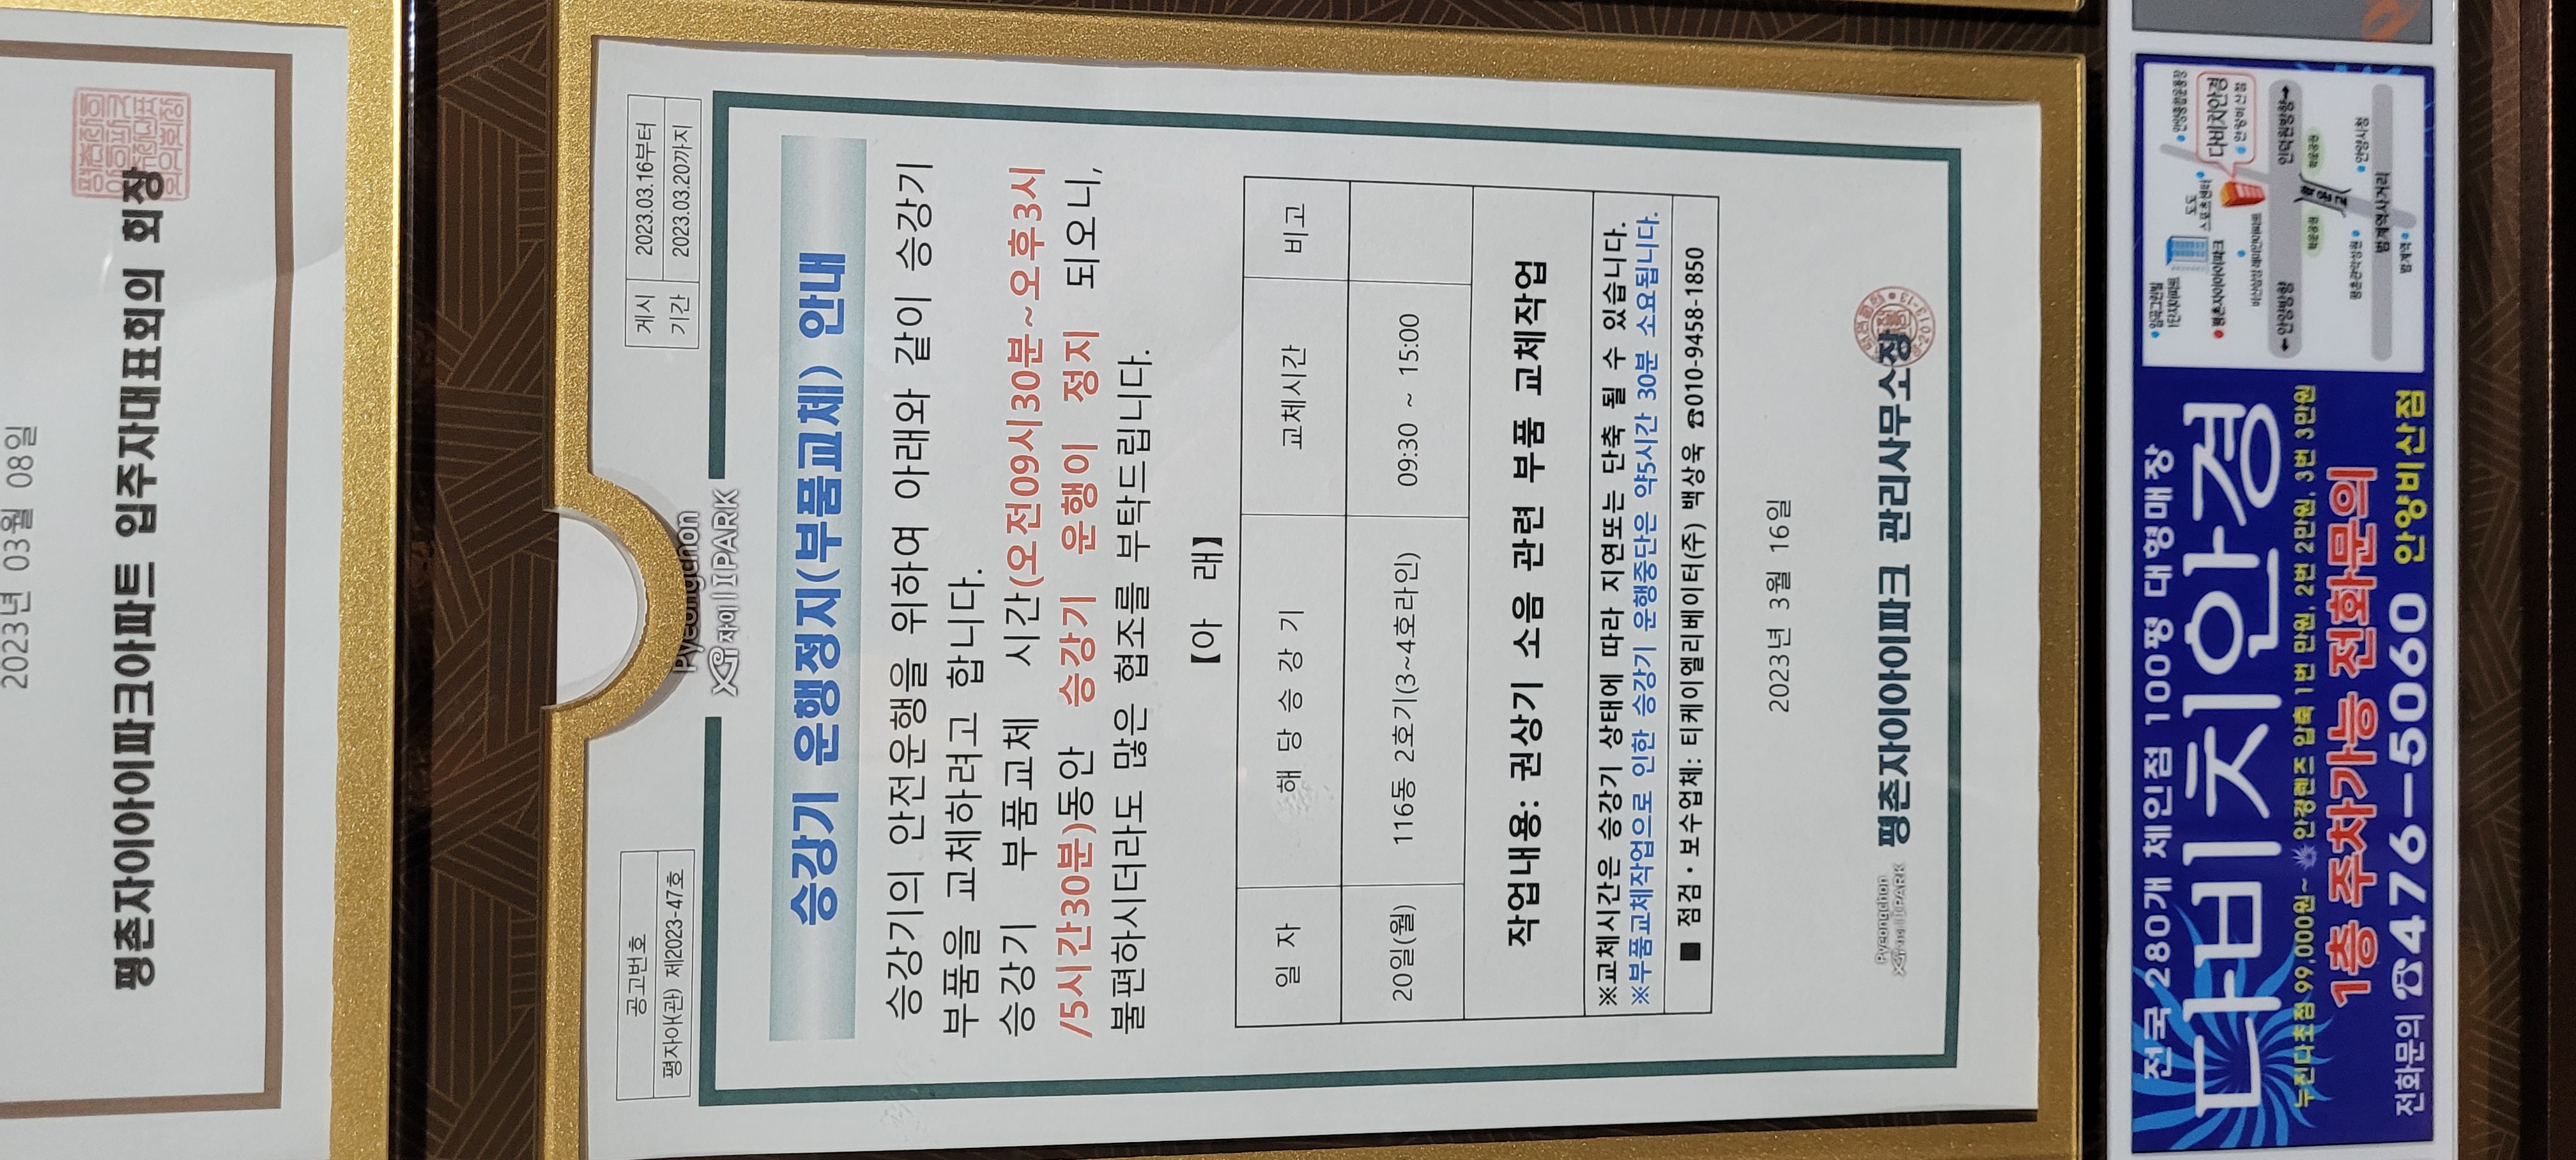 2023년 03월 08일
평촌자이아이파크아파트 입주자대표회의 회장
공고번호
평자아(관) 제2023-47호
게시
기간
2023.03.16부터
2023.03.20까지
Pyeongchon
Xi 자이 | IPARK
승강기 운행정지(부품교체) 안내
승강기의 안전운행을 위하여 아래와 같이 승강기
부품을 교체하려고 합니다.
승강기 부품교체 시간(오전09시30분~오후3시
/5시간30분)동안 승강기 운행이 정지 되오니,
불편하시더라도 많은 협조를 부탁드립니다.
【아 래】
일 자 해 당 승 강 기 교체시간 비고
20일(월) 116동 2호기(3~4호라인) 09:30 ~ 15:00
작업내용: 권상기 소음 관련 부품 교체작업
※교체시간은 승강기 상태에 따라 지연또는 단축 될 수 있습니다.
※부품교체작업으로 인한 승강기 운행중단은 약5시간 30분 소요됩니다.
■ 점검·보수업체: 티케이엘리베이터(주) 백상욱 ☎010-9458-1850
2023년 3월 16일
Pyeongchon
Xi 자이 | IPARK
평촌자이아이파크 관리사무소장
전국 280개 체인점 100평 대형매장
다비치안경
누진다초점 99,000원~ 안경렌즈 압축 1번 만원, 2번 2만원, 3번 3만원
1층 주차가능 전화문의
전화문의 ☎476-5060 안양비산점
임곡그린빌
1단지아파트
평촌자이아이파크
도도
스포츠센터
안양종합운동장
다비치안경
안양비산점
비산삼성래미안아파트
←안양방향
인덕원방향→
학운공원
학운공원
학운교
평촌관악성원
안양시청
범계역사거리
범계역